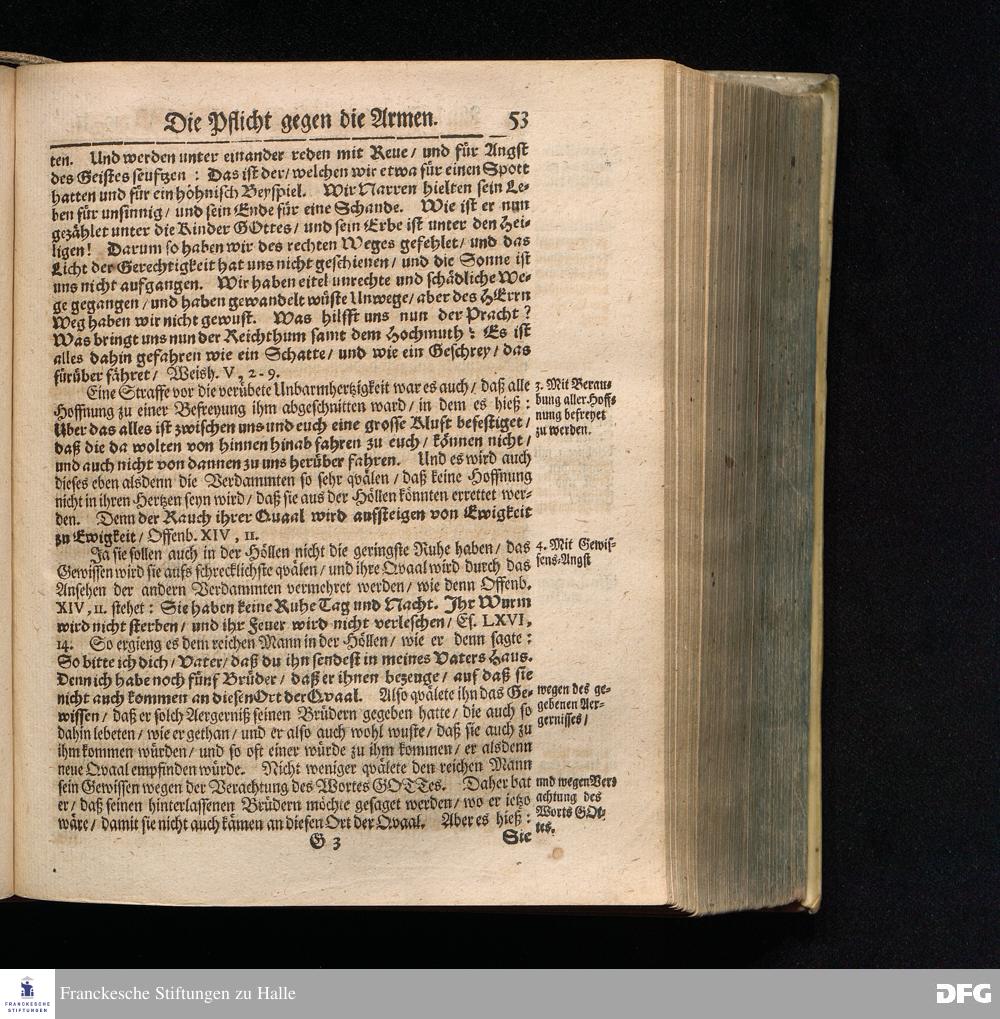 Die Pflicht gegen die Armen. 53
ten. Und werden unter einander reden mit Reue/ und für Angst
des Geistes seufftzen : Das ist der/ welchen wir etwa für einen Spott
hatten und für ein höhnisch Beyspiel. Wir Narren hielten sein Le-
ben für unsinnig/ und sein Ende für eine Schande. Wie ist er nun
gezählet unter die Kinder GOttes/ und sein Erbe ist unter den Hei-
ligen! Darum so haben wir des rechten Weges gefehlet/ und das
Licht der Gerechtigkeit hat uns nicht geschienen/ und die Sonne ist
uns nicht aufgangen. Wir haben eitel unrechte und schädliche We-
ge gegangen/ und haben gewandelt wüste Unwege/ aber des HErrn
Weg haben wir nicht gewust. Was hilfft uns nun der Pracht?
Was bringt uns nun der Reichthum samt dem Hochmuth? Es ist
alles dahin gefahren wie ein Schatte/ und wie ein Geschrey/ das
fürüber fähret/ Weish. V, 2-9.
Eine Straffe vor die verübete Unbarmhertzigkeit war es auch/ daß alle
Hoffnung zu einer Befreyung ihm abgeschnitten ward/ in dem es hieß :
Über das alles ist zwischen uns und euch eine grosse Kluft befestiget/
daß die da wolten von hinnen hinab fahren zu euch/ können nicht/
und auch nicht von dannen zu uns herüber fahren. Und es wird auch
dieses eben alsdenn die Verdammten so sehr qvälen/ daß keine Hoffnung
nicht in ihren Hertzen seyn wird/ daß sie aus der Höllen könnten errettet wer-
den. Denn der Rauch ihrer Quaal wird aufsteigen von Ewigkeit
zu Ewigkeit/ Offenb. XIV, 11.
3. Mit Berau-
bung aller Hoff-
nung befreyet
zu werden.
Ja sie sollen auch in der Höllen nicht die geringste Ruhe haben/ das
Gewissen wird sie aufs schrecklichste qvälen/ und ihre Qvaal wird durch das
Ansehen der andern Verdammten vermehret werden/ wie denn Offenb.
XIV, 11. stehet : Sie haben keine Ruhe Tag und Nacht. Ihr Wurm
wird nicht sterben/ und ihr Feuer wird nicht verleschen/ Es. LXVI,
14. So ergieng es dem reichen Mann in der Höllen/ wie er denn sagte :
So bitte ich dich/ Vater/ daß du ihn sendest in meines Vaters Haus.
Denn ich habe noch fünf Brüder/ daß er ihnen bezeuge/ auf daß sie
nicht auch kommen an diesen Ort der Qvaal. Also qvälete ihn das Ge-
wissen/ daß er solch Aergerniß seinen Brüdern gegeben hatte/ die auch so
dahin lebeten/ wie er gethan/ und er also auch wohl wuste/ daß sie auch zu
ihm kommen würden/ und so oft einer würde zu ihm kommen/ er alsdenn
neue Qvaal empfinden würde. Nicht weniger qvälete den reichen Mann
sein Gewissen wegen der Verachtung des Wortes GOTTes. Daher bat
er/ daß seinen hinterlassenen Brüdern möchte gesaget werden/ wo er ietzo
wäre/ damit sie nicht auch kämen an diesen Ort der Qvaal. Aber es hieß :
4. Mit Gewis-
sens-Angst
wegen des ge-
gebenen Aer-
gernisses/
und wegen Ver-
achtung des
Worts GOt-
tes.
G 3 Sie
FRANCKESCHE
STIFTUNGEN
Franckesche Stiftungen zu Halle
DFG